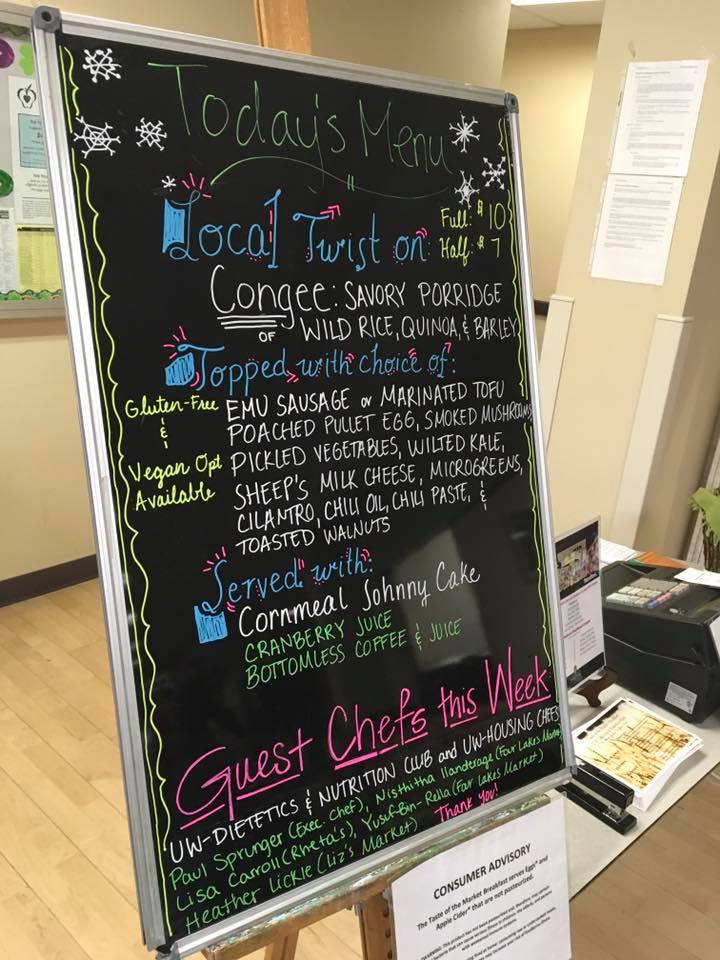 Today's Menu
Local Twist on
Full: $10
Half: $7
Congee: SAVORY PORRIDGE
OF WILD RICE, QUINOA, & BARLEY
Topped with choice of:
Gluten-Free
&
Vegan Opt
Available
EMU SAUSAGE or MARINATED TOFU
POACHED PULLET EGG, SMOKED MUSHROOMS
PICKLED VEGETABLES, WILTED KALE,
SHEEP'S MILK CHEESE, MICROGREENS,
CILANTRO, CHILI OIL, CHILI PASTE, &
TOASTED WALNUTS
Served with:
Cornmeal Johnny Cake
CRANBERRY JUICE
BOTTOMLESS COFFEE & JUICE
Guest Chefs this Week
UW-DIETETICS & NUTRITION CLUB and UW-HOUSING CHEFS
Paul Sprunger (Exec. Chef), Nisthitha Ilanderage (Four Lakes Market)
Lisa Carroll (Rheta's), Yusuf-Bin-Rella (Four Lakes Market)
Heather Lickle (Liz's Market) Thank You!
CONSUMER ADVISORY
The Taste of the Market Breakfast serves Eggs* and
Apple Cider* that are not pasteurized.